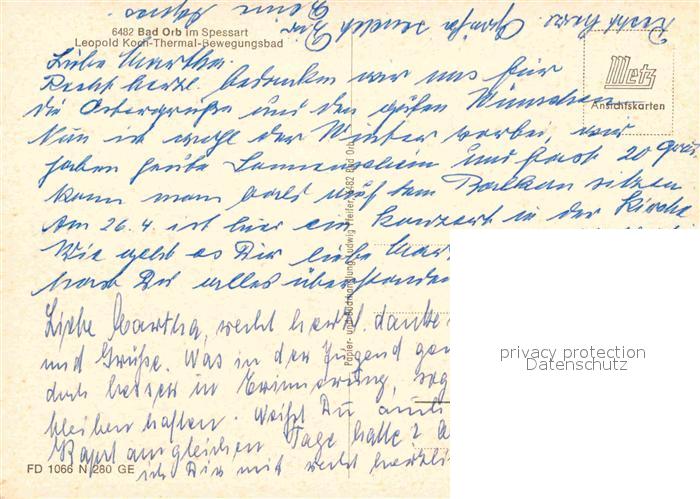 6482 Bad Orb im Spessart
Leopold Koch-Thermal-Bewegungsbad
Metz
Ansichtskarten
Liebe Martha.
Recht herzl. bedanken wir uns für
die Ostergrüße und den guten Wünschen
Nun ist wohl der Winter vorbei, wir
haben heute Sonnenschein und fast 20 Grad
kann man bald auf dem Balkon sitzen
Am 26.4. ist hier ein Konzert in der Kirche
Wie geht es Dir liebe
hast Du alles überstanden
Liebe Martha, recht herzl. danke
und Grüße. Was in der Jugend
doch besser in Erinnerung,
bleiben haften. Weißt Du auch
am gleichen Tage hatte
ich Dir mit recht herzli
Recht herz. Grüße sendet Dir
Deine
Papier- und Buchhandlung Ludwig Pfeifer, 6482 Bad Orb
privacy protection
Datenschutz
FD 1066 N 280 GE